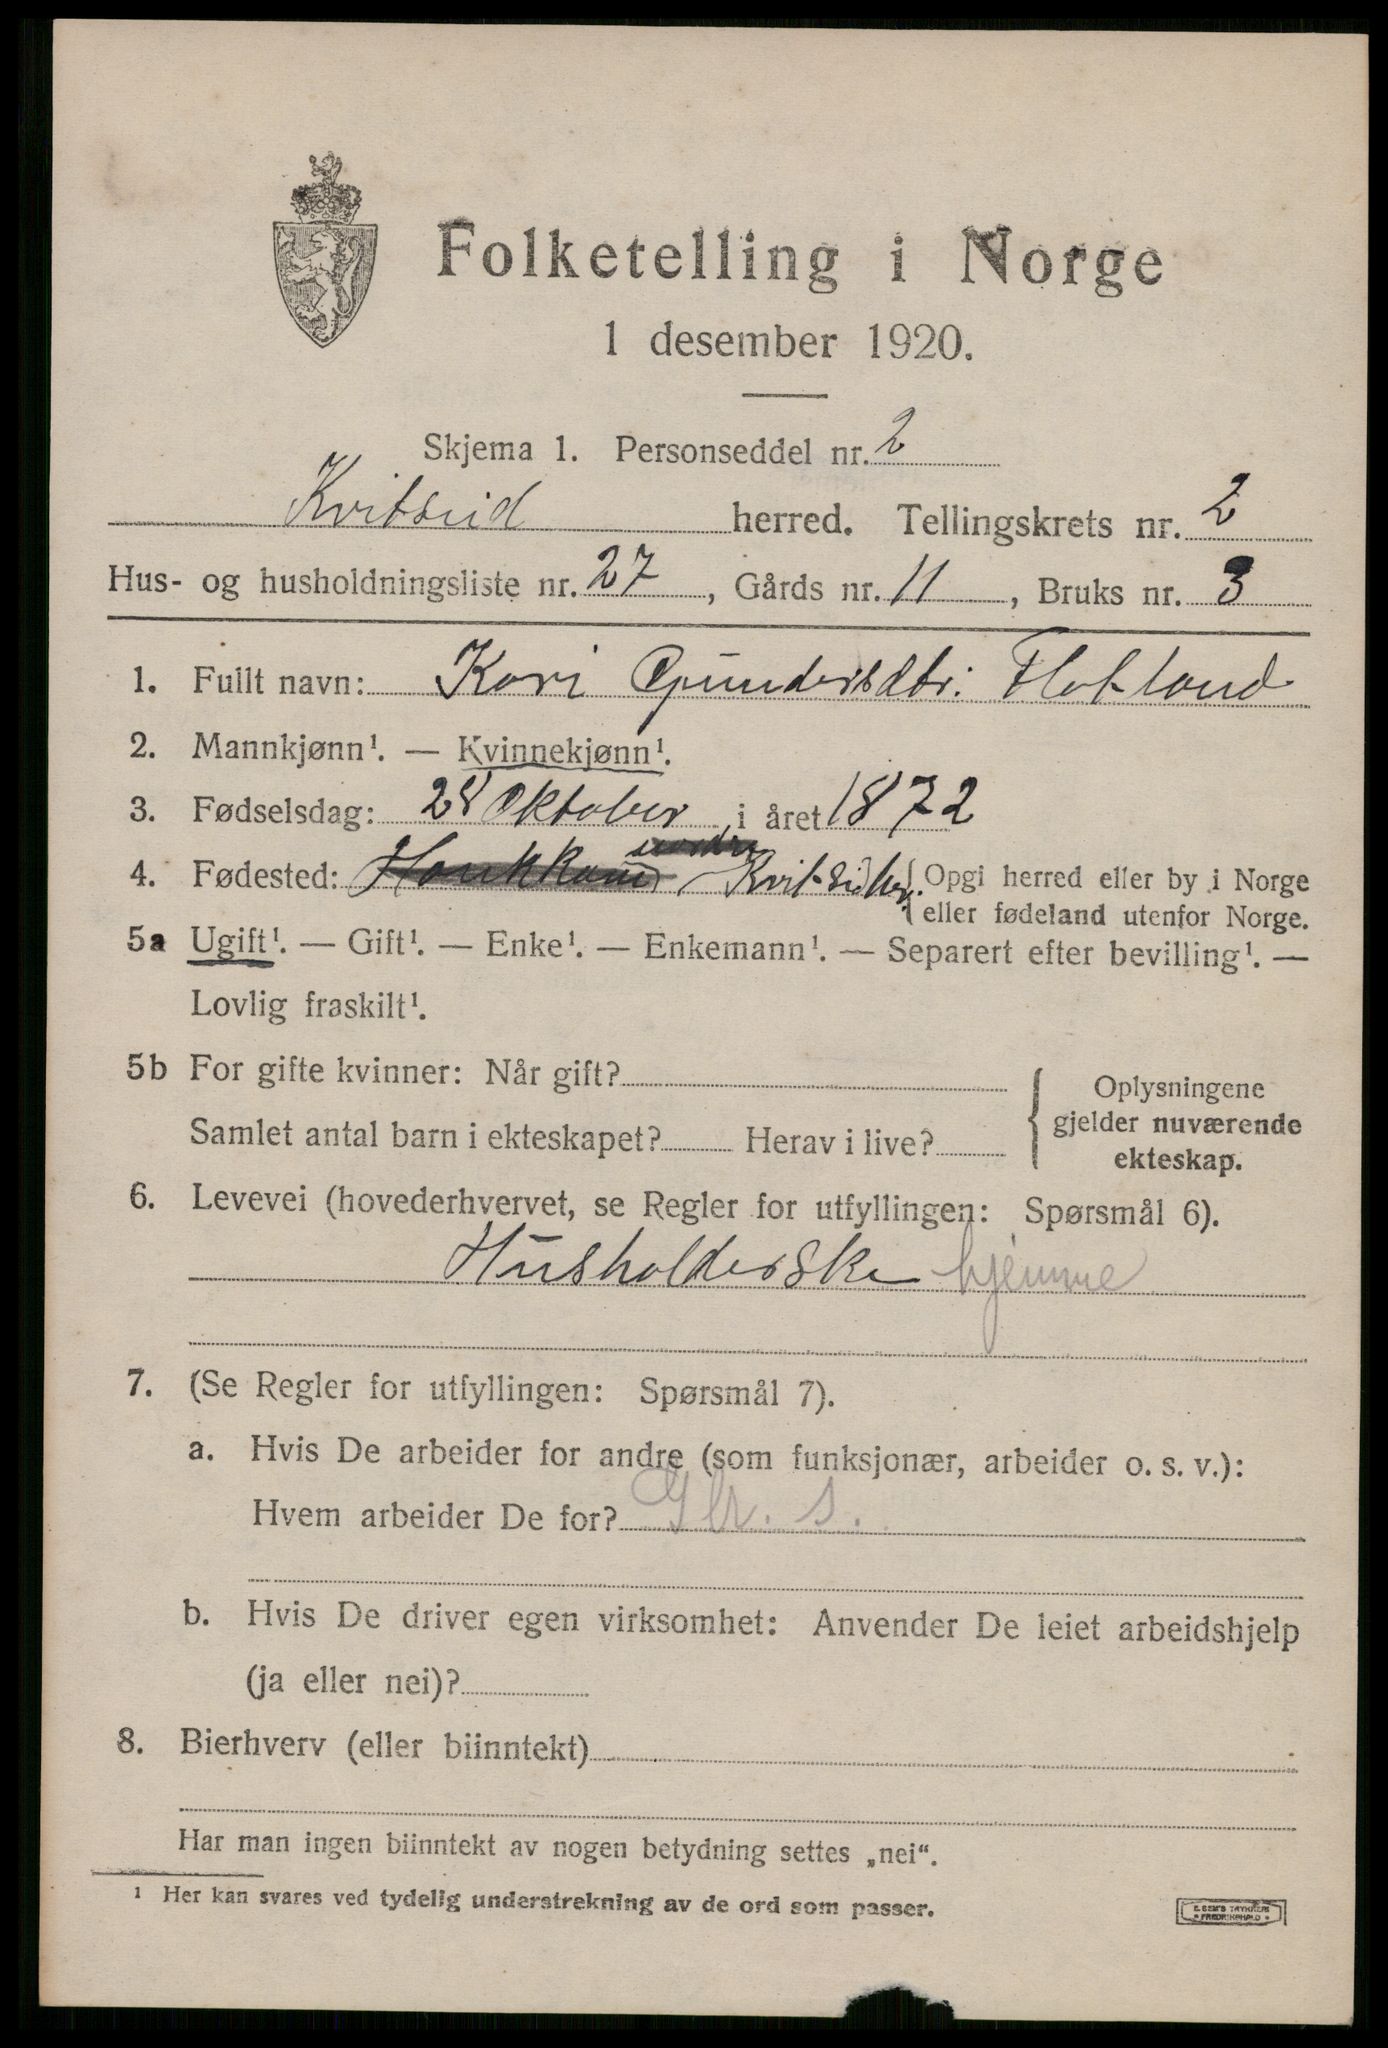 Folketelling i Norge
1 desember 1920.
Skjema 1. Personseddel nr. 2
Kvitseid herred. Tellingskrets nr. 2
Hus- og husholdningsliste nr. 27, Gårds nr. 11, Bruks nr. 3
1. Fullt navn: Kari Gundersdtr. Flatland
2. Mannkjønn¹. — Kvinnekjønn¹.
3. Fødselsdag: 28 Oktober, i året 1872
4. Fødested: Kvitseid herr. {Opgi herred eller by i Norge
eller fødeland utenfor Norge.
5a Ugift¹. — Gift¹. — Enke¹. — Enkemann¹. — Separert efter bevilling¹. —
Lovlig fraskilt¹.
5b For gifte kvinner: Når gift?
Samlet antal barn i ekteskapet? Herav i live?
{ Oplysningene
gjelder nuværende
ekteskap.
6. Levevei (hovederhvervet, se Regler for utfyllingen: Spørsmål 6).
Husholderske hjemme
7. (Se Regler for utfyllingen: Spørsmål 7).
a. Hvis De arbeider for andre (som funksjonær, arbeider o. s. v.):
Hvem arbeider De for?
b. Hvis De driver egen virksomhet: Anvender De leiet arbeidshjelp
(ja eller nei)?
8. Bierhverv (eller biinntekt)
Har man ingen biinntekt av nogen betydning settes „nei“.
¹ Her kan svares ved tydelig understrekning av de ord som passer.
E. SEM'S TRYKKERI
FREDRIKSHALD